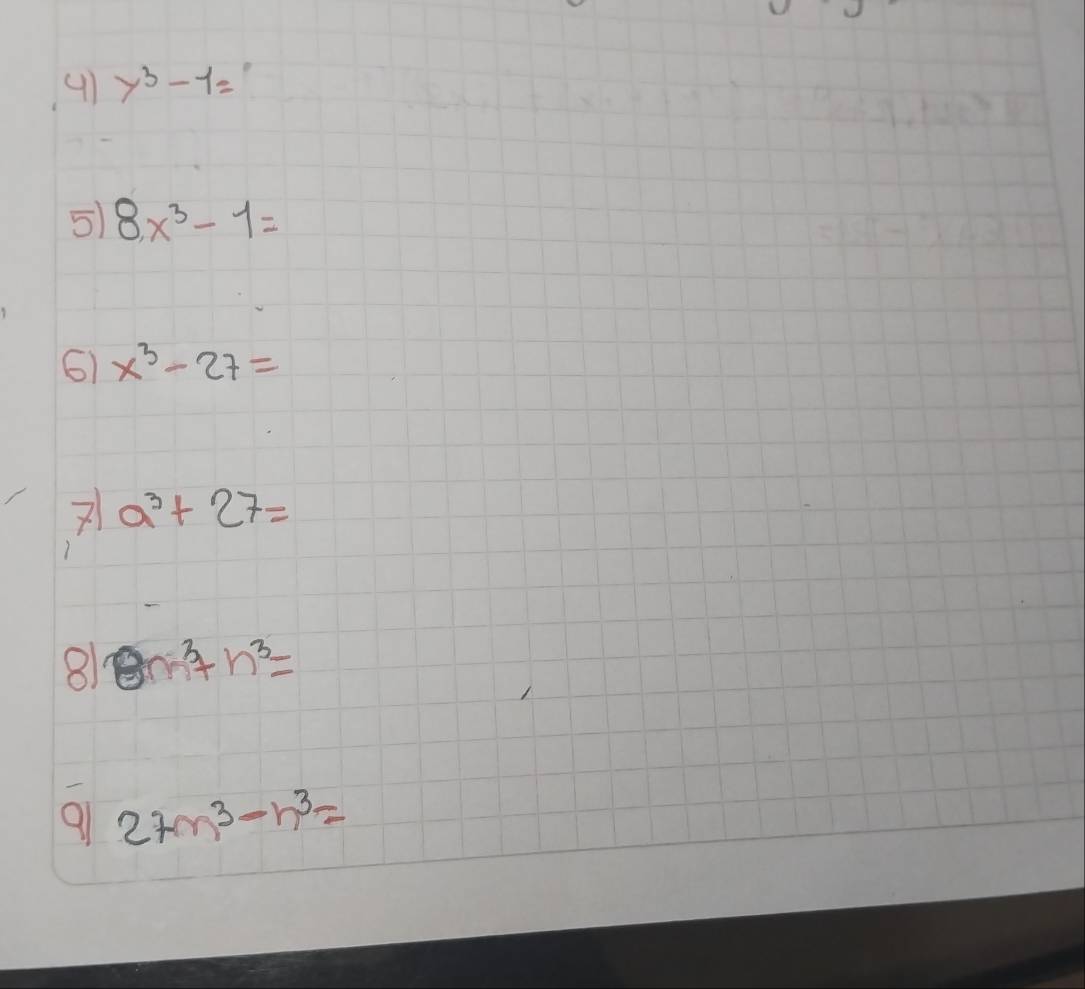 4) y³ - 1 =
5) 8x³ - 1 =
6) x³ - 27 =
7) a³ + 27 =
8) 8m³ + n³ =
9) 27m³ - n³ =